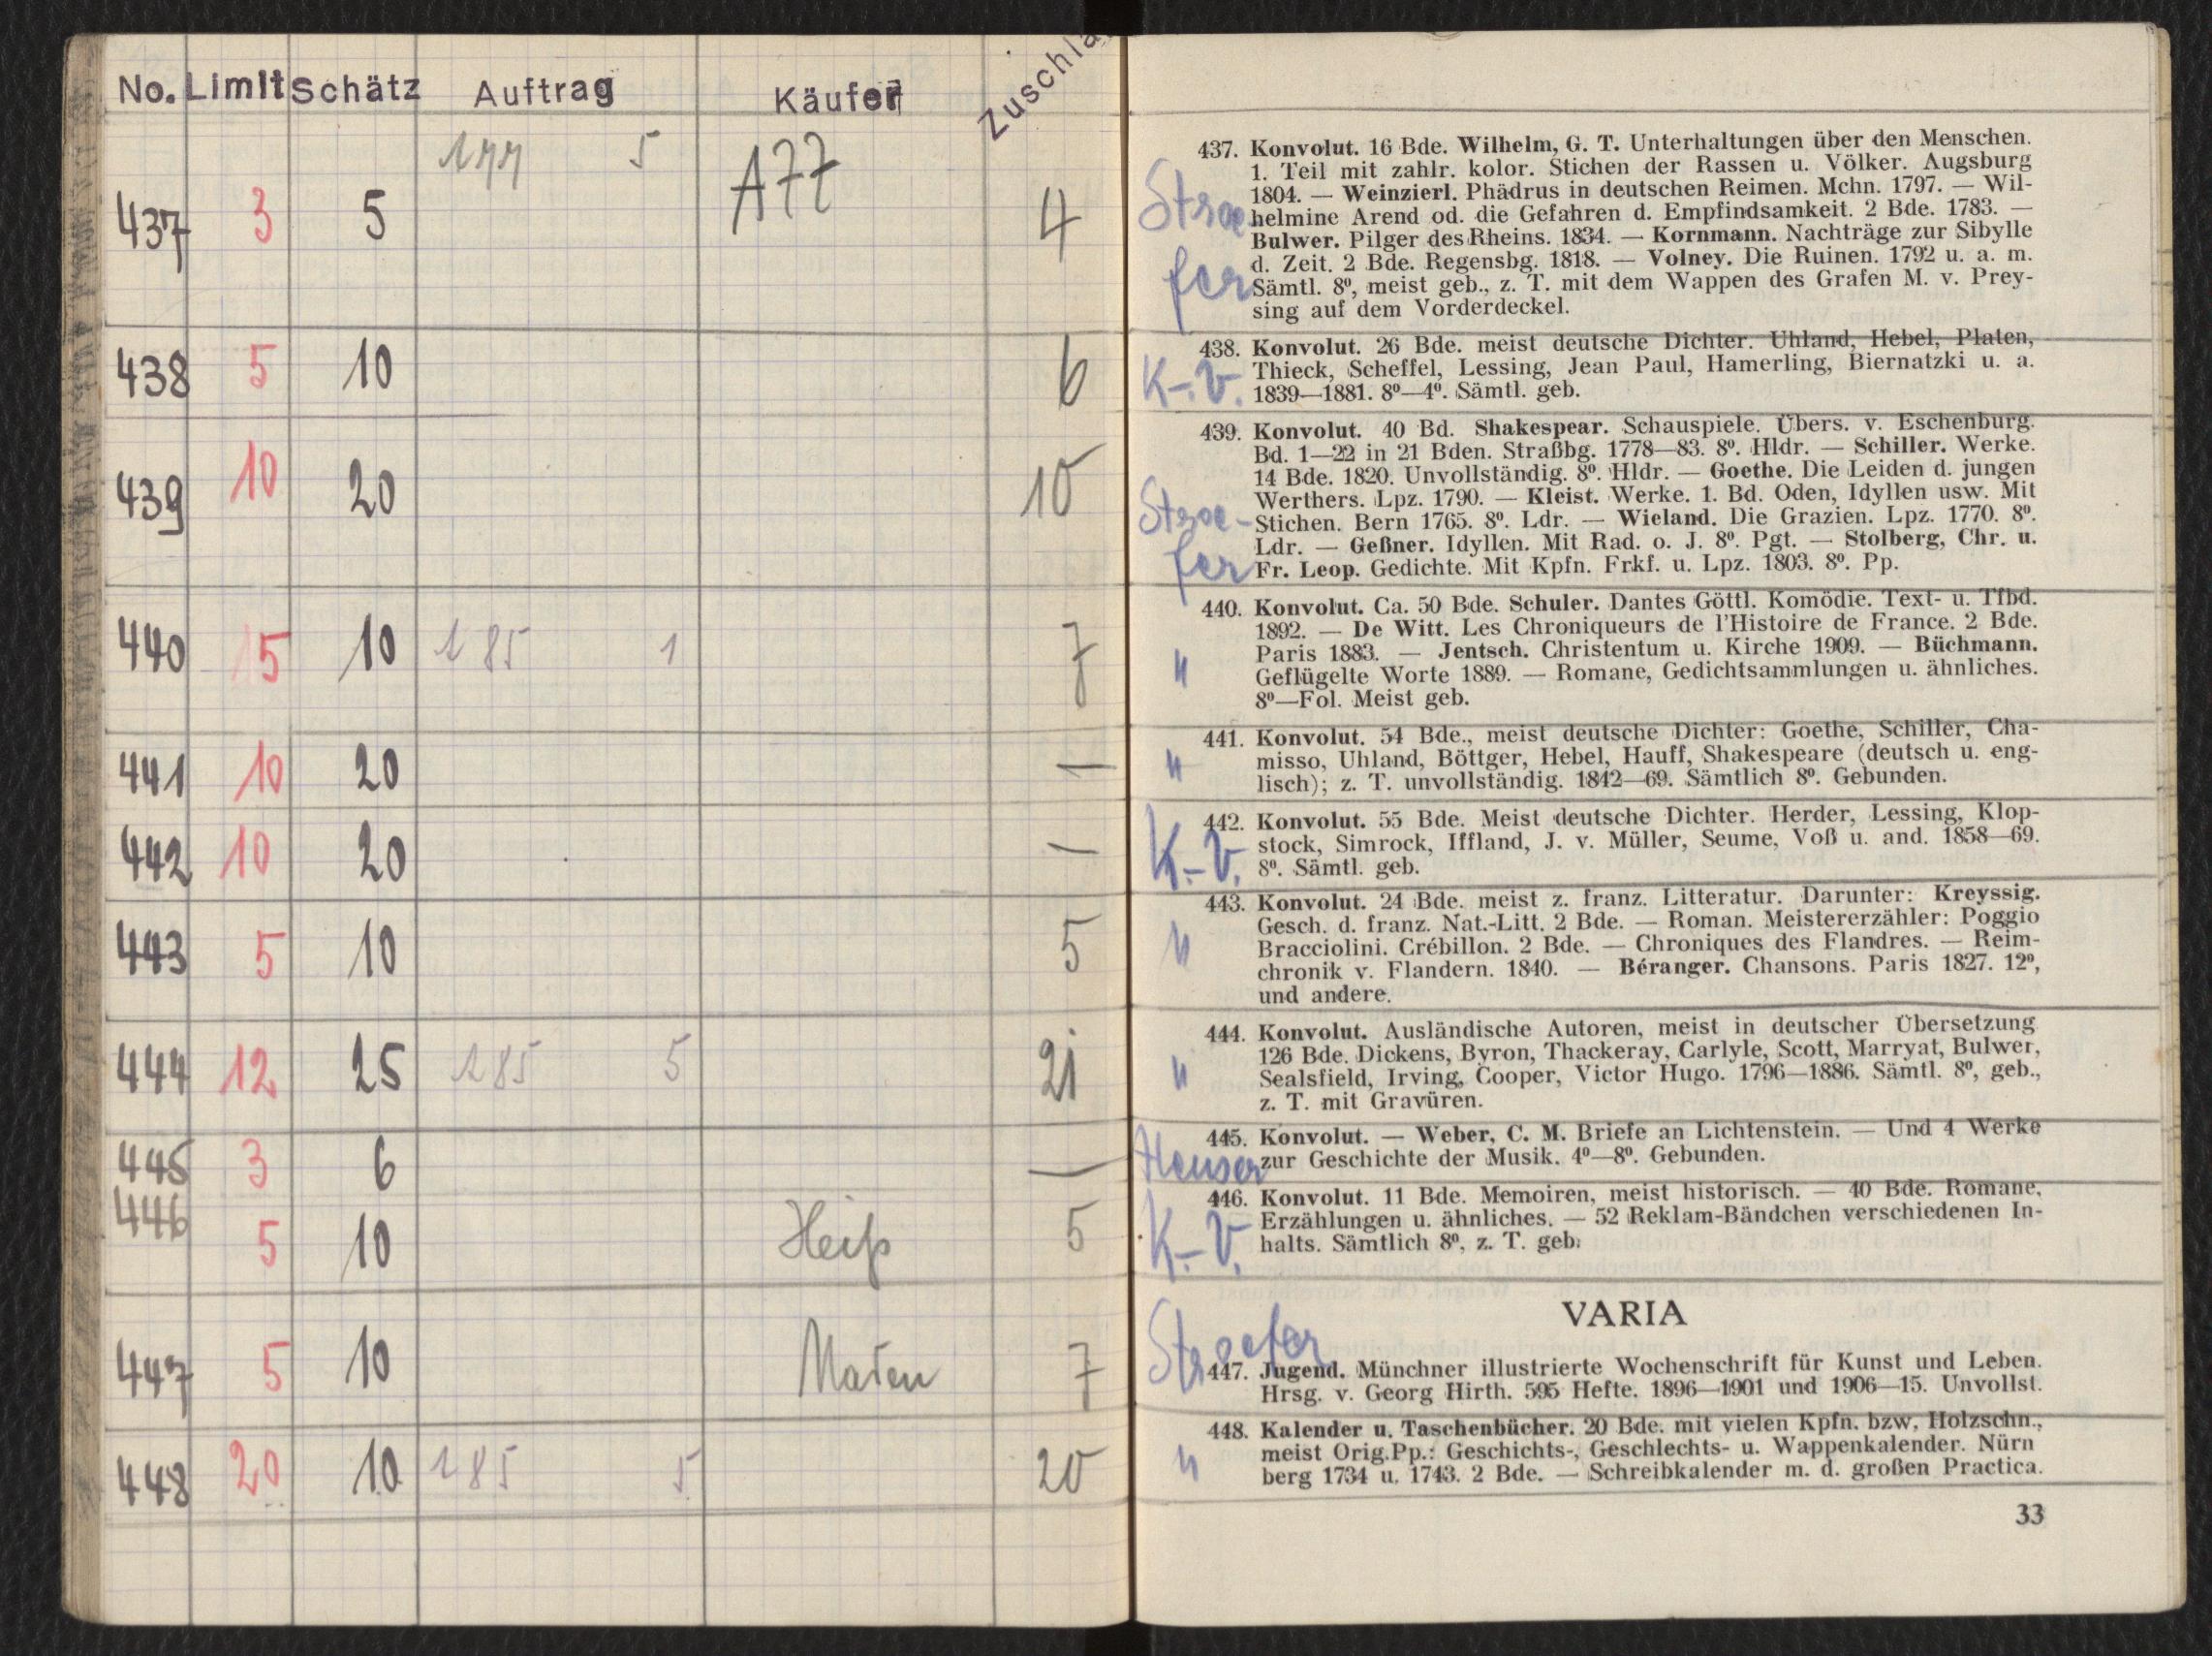 No. Limit Schätz Auftrag Käufer
177 5
437 3 5 A77 4
438 5 10 6
439 10 20 10
440 5 10 185 1 7
441 10 20 —
442 10 20 —
443 5 10 5
444 12 25 185 5 21
445 3 6 —
446 5 10 Heiß 5
447 5 10 7
448 20 10 185 5 20
437. Konvolut. 16 Bde. Wilhelm, G. T. Unterhaltungen über den Menschen.
1. Teil mit zahlr. kolor. Stichen der Rassen u. Völker. Augsburg
1804. — Weinzierl. Phädrus in deutschen Reimen. Mchn. 1797. — Wil-
Stroe
helmine Arend od. die Gefahren d. Empfindsamkeit. 2 Bde. 1783. —
Bulwer. Pilger des Rheins. 1834. — Kornmann. Nachträge zur Sibylle
d. Zeit. 2 Bde. Regensbg. 1818. — Volney. Die Ruinen. 1792 u. a. m.
fer
Sämtl. 8º, meist geb., z. T. mit dem Wappen des Grafen M. v. Prey-
sing auf dem Vorderdeckel.
438. Konvolut. 26 Bde. meist deutsche Dichter. Uhland, Hebel, Platen,
K.-V.
Thieck, Scheffel, Lessing, Jean Paul, Hamerling, Biernatzki u. a.
1839—1881. 8º—4º. Sämtl. geb.
439. Konvolut. 40 Bd. Shakespear. Schauspiele. Übers. v. Eschenburg.
Bd. 1—22 in 21 Bden. Straßbg. 1778—83. 8º. Hldr. — Schiller. Werke.
14 Bde. 1820. Unvollständig. 8º. Hldr. — Goethe. Die Leiden d. jungen
Werthers. Lpz. 1790. — Kleist. Werke. 1. Bd. Oden, Idyllen usw. Mit
Stroe-
Stichen. Bern 1765. 8º. Ldr. — Wieland. Die Grazien. Lpz. 1770. 8º.
Ldr. — Geßner. Idyllen. Mit Rad. o. J. 8º. Pgt. — Stolberg, Chr. u.
fer
Fr. Leop. Gedichte. Mit Kpfn. Frkf. u. Lpz. 1803. 8º. Pp.
440. Konvolut. Ca. 50 Bde. Schuler. Dantes Göttl. Komödie. Text- u. Tfbd.
1892. — De Witt. Les Chroniqueurs de l'Histoire de France. 2 Bde.
Paris 1883. — Jentsch. Christentum u. Kirche 1909. — Büchmann.
"
Geflügelte Worte 1889. — Romane, Gedichtsammlungen u. ähnliches.
8º—Fol. Meist geb.
441. Konvolut. 54 Bde., meist deutsche Dichter: Goethe, Schiller, Cha-
"
misso, Uhland, Böttger, Hebel, Hauff, Shakespeare (deutsch u. eng-
lisch); z. T. unvollständig. 1842—69. Sämtlich 8º. Gebunden.
442. Konvolut. 55 Bde. Meist deutsche Dichter. Herder, Lessing, Klop-
K.-V.
stock, Simrock, Iffland, J. v. Müller, Seume, Voß u. and. 1858—69.
8º. Sämtl. geb.
443. Konvolut. 24 Bde. meist z. franz. Litteratur. Darunter: Kreyssig.
Gesch. d. franz. Nat.-Litt. 2 Bde. — Roman. Meistererzähler: Poggio
"
Bracciolini. Crébillon. 2 Bde. — Chroniques des Flandres. — Reim-
chronik v. Flandern. 1840. — Béranger. Chansons. Paris 1827. 12º,
und andere.
444. Konvolut. Ausländische Autoren, meist in deutscher Übersetzung
126 Bde. Dickens, Byron, Thackeray, Carlyle, Scott, Marryat, Bulwer,
"
Sealsfield, Irving, Cooper, Victor Hugo. 1796—1886. Sämtl. 8º, geb.,
z. T. mit Gravüren.
445. Konvolut. — Weber, C. M. Briefe an Lichtenstein. — Und 4 Werke
Heuser
zur Geschichte der Musik. 4º—8º. Gebunden.
446. Konvolut. 11 Bde. Memoiren, meist historisch. — 40 Bde. Romane,
K.-V.
Erzählungen u. ähnliches. — 52 Reklam-Bändchen verschiedenen In-
halts. Sämtlich 8º, z. T. geb.
VARIA
Stroefer
447. Jugend. Münchner illustrierte Wochenschrift für Kunst und Leben.
Hrsg. v. Georg Hirth. 595 Hefte. 1896—1901 und 1906—15. Unvollst.
448. Kalender u. Taschenbücher. 20 Bde. mit vielen Kpfn. bzw. Holzschn.,
"
meist Orig.Pp.: Geschichts-, Geschlechts- u. Wappenkalender. Nürn
berg 1734 u. 1743. 2 Bde. — Schreibkalender m. d. großen Practica.
33